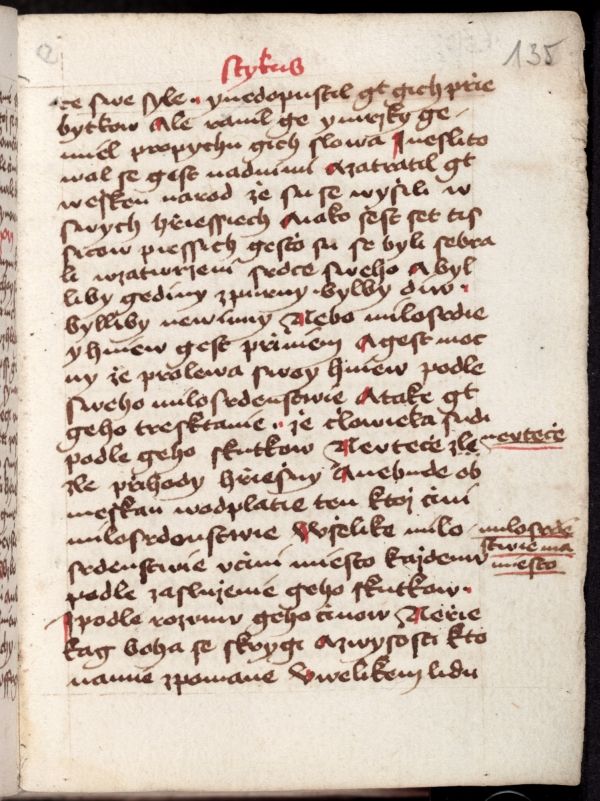 135
Stykus
ce swe syle · ynedopustil gt gich prie
bytkow Ale ranil ge ymrsky ge
miel propychu gich slowa Ineslito
wal se gest nadnimi Azatratil gt
wessken narod ze su se wysili w
swych hriessiech Aiako sest set tis
sicow piessich gesto su se byli sebra
li wzatwrzeni srdce sweho Abyl
liby gediny zpurny · bylby diw ·
bylliby newinny Nebo milosrdie
yhniew gest przimiem Agest moc
ny ze prolewa swoy hniew podle
sweho milosrdenstwie Atake gt
geho tresktanie · ze clowieka sudi
podle geho skutkow Nevtece zle
zle prihody hriessny Anebude ob
messkan wodplatie ten ktoz cini
milosrdenstwie Wsselike milo
srdenstwie vcini miesto kazdemu
podle zasluzenie geho skutkow ·
Ipodle rozumu geho cinow Nerie
kag boha se skrygi Azwysosti kto
namie zpomane Vwelikem lidu
nevtece
milosrde
stwie ma
miesto